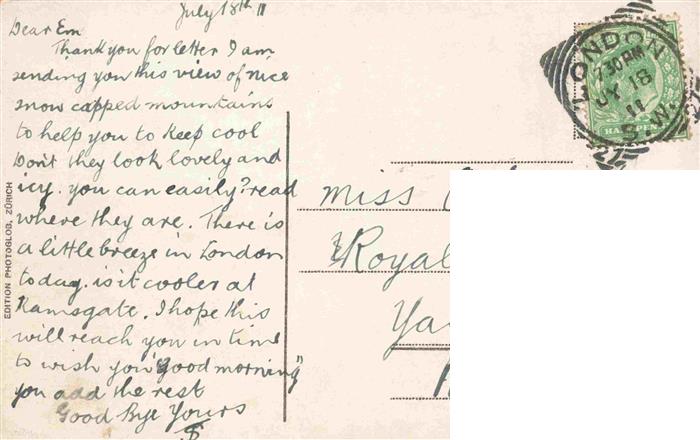 July 18th 11
Dear Em
Thank you for letter I am
sending you this view of nice
snow capped mountains
to help you to keep cool
Don't they look lovely and
icy. you can easily? read
where they are. There is
a little breeze in London
today. is it cooler at
Ramsgate. I hope this
will reach you in time
to wish you "good morning"
you add the rest
Good Bye Yours
EDITION PHOTOGLOB, ZÜRICH
LONDON
7.30 AM
JY 18
11
S.W.
27
HALFPENNY
Miss
Royal